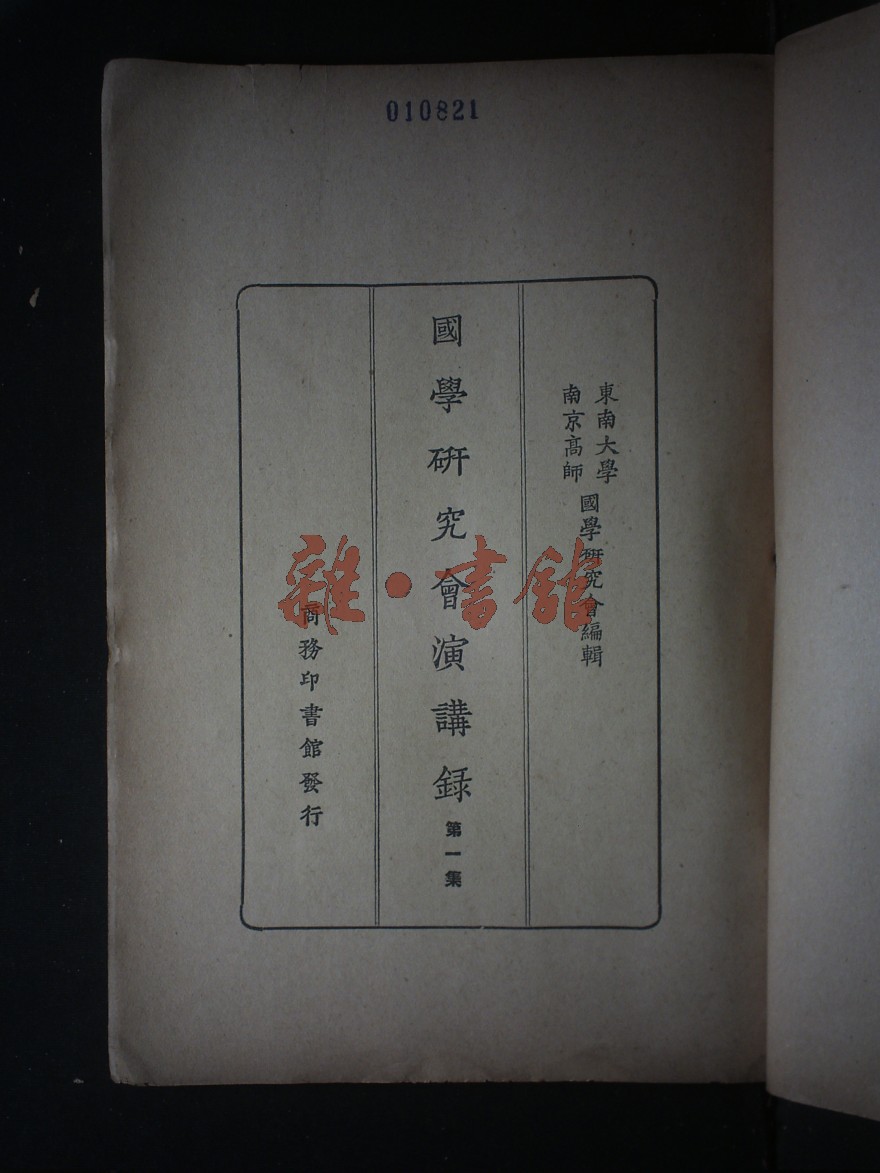 010821
東南大學
南京高師
國學硏究會編輯
國學硏究會演講録
第一集
商務印書館發行
雜·書館